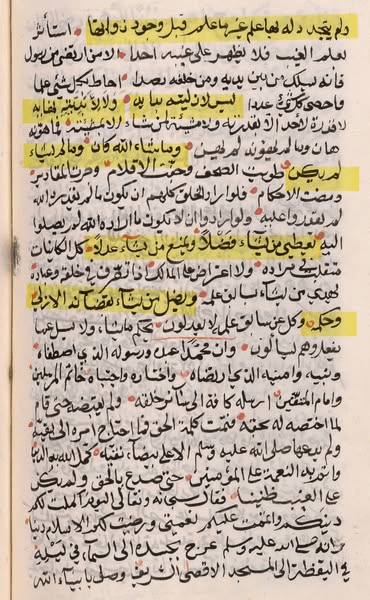 ولم يتجدد له بها علم غير ما علم قبل وجود ذواتها استأثر
بعلم الغيب فلا يظهر على غيبه احدا الا من ارتضى من رسول
فانه يسلك من بين يديه ومن خلفه رصدا احاط بكل شئ علما
واحصى كل شئ عددا ليس لازليته بداية ولا لابديته نهاية
لا قدرة لاحد الا بقدرته ولا مشيئة لمن شاء الا بمشيئته
وما شاء الله كان وما لم يشاء
لم يكن طويت الصحف وجفت الاقلام وجرت المقادير
ومضت الاحكام فلو اراد الخلق كلهم ان يكون ما لم يقدره الله
لم يقدروا عليه ولو ارادوا ان لا يكون ما اراده الله لم يصلوا
اليه يعطي من يشاء فضلا ويمنع من يشاء عدلا كل الكائنات
ولا اعتراض على المالك في خلقه وعباده
يهدي من يشاء بسابق علمه ويضل من يشاء بقضائه الازلي
وحكمه وكل عن سابق علمه لا يعدلون يحكم ما يشاء ولا يسئل عما
يفعل وهم يسألون وان محمدا عبده ورسوله الذي اصطفاه
ونبيه وامينه الذي ارتضاه واختاره واجتباه خاتم المرسلين
وامام المتقين ارسله كافة الى سائر خلقه ولم يقبضه حتى قام
بما اختصه له بحقه فتمت كلمة الحق
صلى الله عليه وسلم
واتم به النعمة على المؤمنين حتى صدع بالحق ولم يكن
على الغيب ظنينا فقال سبحانه وتعالى اليوم اكملت لكم
دينكم واتممت عليكم نعمتي ورضيت لكم الاسلام دينا
وانه صلى الله عليه وسلم عرج بجسده الى السماء في ليلة
في اليقظة الى المسجد الاقصى الشريف وصلى بانبياء الله